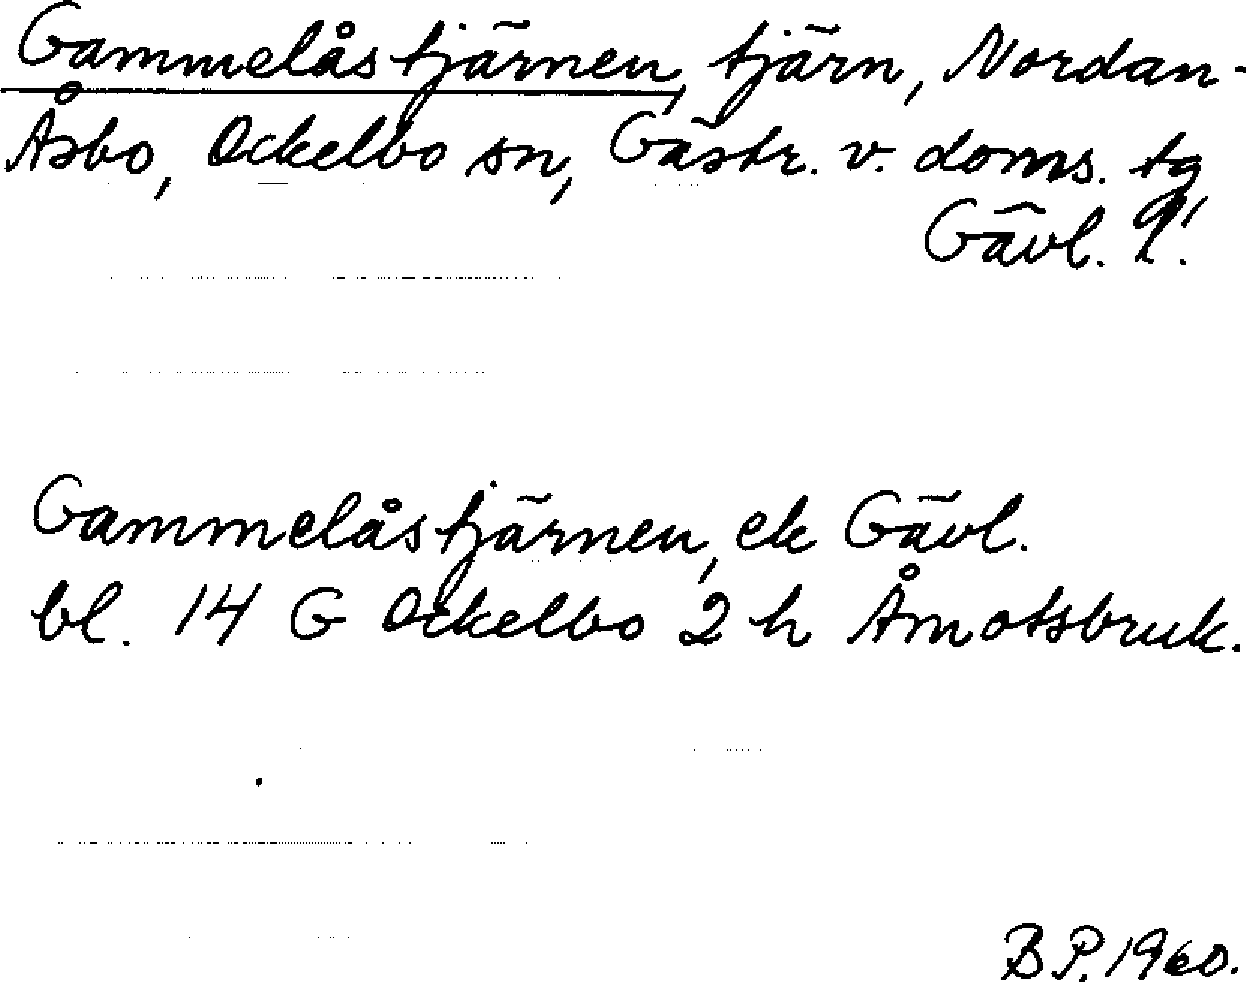 Gammelåstjärnen, tjärn, Nordan-
Åsbo, Ockelbo sn, Gästr. v. doms. tg
Gävl. l!
Gammelåstjärnen, ek Gävl.
bl. 14 G Ockelbo 2 h Åmotsbruk.
B.P. 1960.